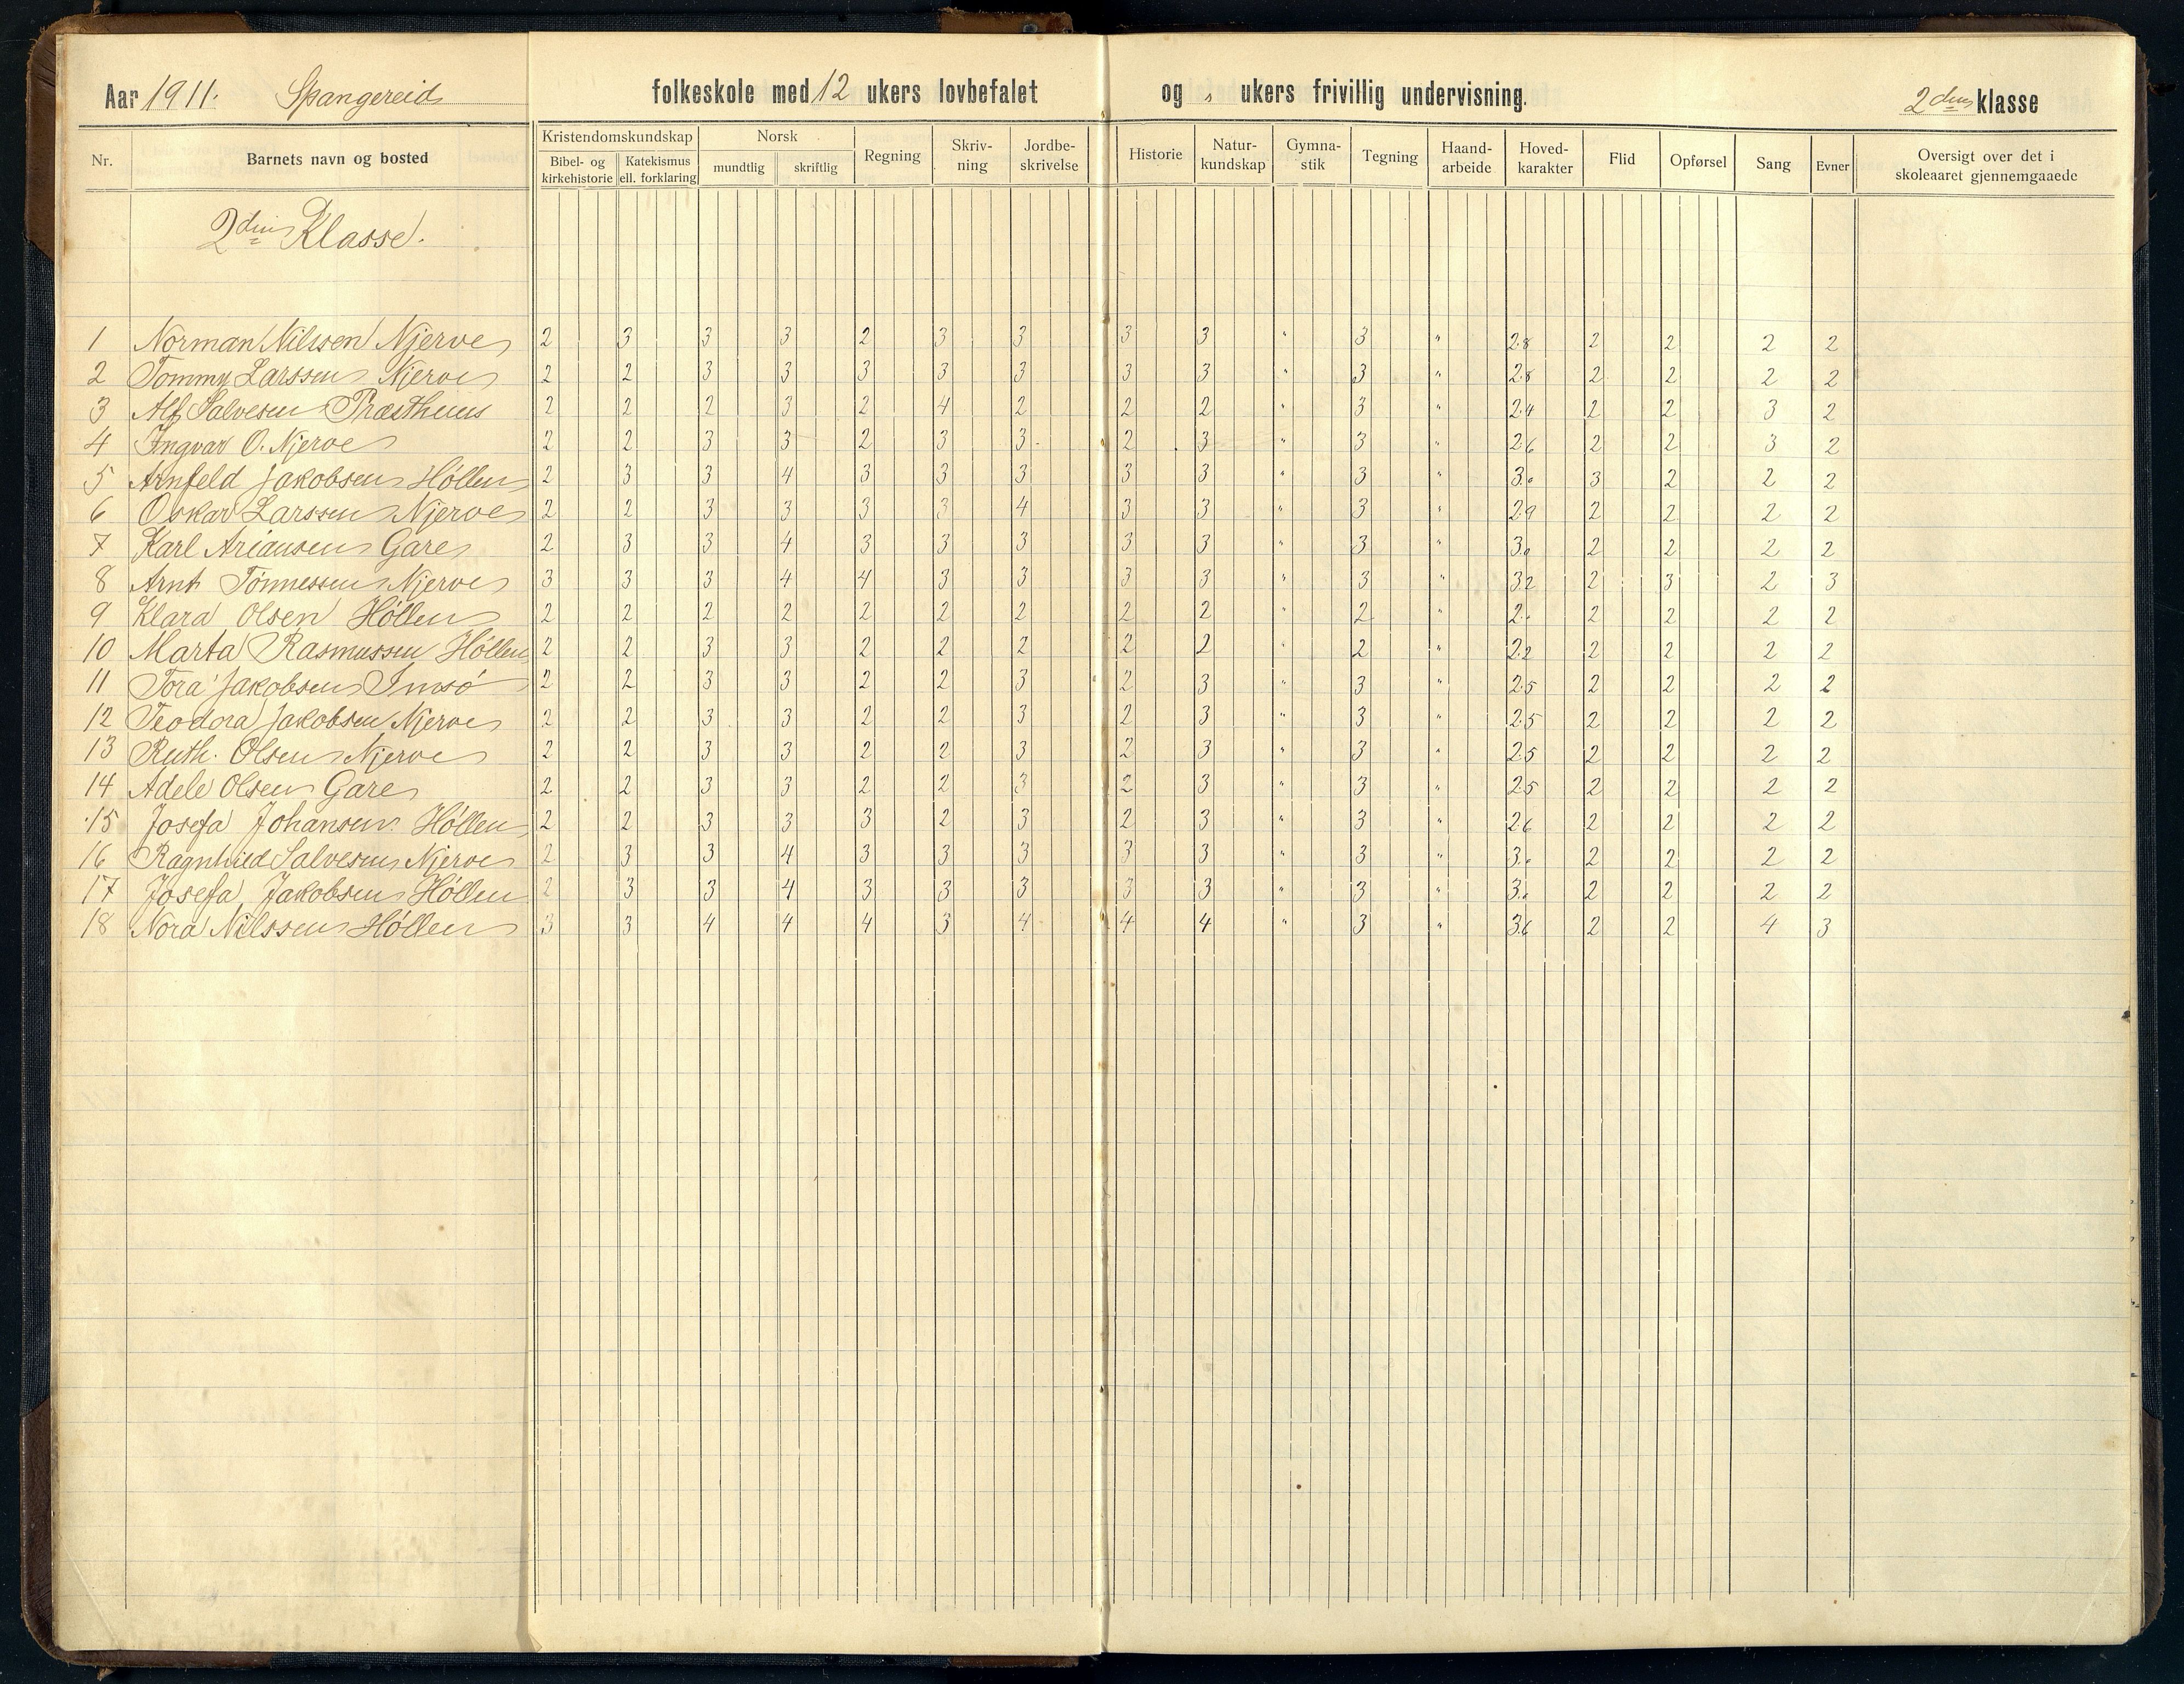 Aar 1911. Spangereid folkeskole med 12 ukers lovbefalet og " ukers frivillig undervisning. 2den klasse
Nr. Barnets navn og bosted Kristendomskundskap Bibel- og kirkehistorie Katekismus ell. forklaring Norsk mundtlig skriftlig Regning Skriv-ning Jordbe-skrivelse Historie Natur-kundskap Gymna-stik Tegning Haand-arbeide Hoved-karakter Flid Opførsel Sang Evner Oversigt over det i skoleaaret gjennemgaaede
2den Klasse.
1 Norman Nilssen Njerve 2 3 3 3 2 3 3 3 3 " 3 " 2.8 2 2 2 2
2 Tommy Larssen Njerve 2 2 3 3 3 3 3 3 3 " 3 " 2.8 2 2 2 2
3 Alf Salvesen Præsthuus 2 2 2 3 2 4 2 2 2 " 3 " 2.4 2 2 3 2
4 Ingvar O. Njerve 2 2 3 3 2 3 3 2 3 " 3 " 2.6 2 2 3 2
5 Arnfeld Jakobsen Höllen 2 3 3 4 3 3 3 3 3 " 3 " 3.0 3 2 2 2
6 Oskar Larssen Njerve 2 2 3 3 3 3 4 3 3 " 3 " 2.9 2 2 2 2
7 Karl Ariansen Gare 2 3 3 4 3 3 3 3 3 " 3 " 3.0 2 2 2 2
8 Arnt Tönnessen Njerve 3 3 3 4 4 3 3 3 3 " 3 " 3.2 2 3 2 3
9 Klara Olsen Höllen 2 2 2 2 2 2 2 2 2 " 2 " 2.0 2 2 2 2
10 Marta Rasmussen Höllen 2 2 3 3 2 2 2 2 2 " 2 " 2.2 2 2 2 2
11 Tora Jakobsen Imsö 2 2 3 3 2 2 3 2 3 " 3 " 2.5 2 2 2 2
12 Teodora Jakobsen Njerve 2 2 3 3 2 2 3 2 3 " 3 " 2.5 2 2 2 2
13 Ruth. Olsen Njerve 2 2 3 3 2 2 3 2 3 " 3 " 2.5 2 2 2 2
14 Adele Olsen Gare 2 2 3 3 2 2 3 2 3 " 3 " 2.5 2 2 2 2
15 Josefa Johansen Höllen 2 2 3 3 3 2 3 2 3 " 3 " 2.6 2 2 2 2
16 Ragnhild Salvesen Njerve 2 3 3 4 3 3 3 3 3 " 3 " 3.0 2 2 2 2
17 Josefa Jakobsen Höllen 2 3 3 4 3 3 3 3 3 " 3 " 3.0 2 2 2 2
18 Nora Nilssen Höllen 3 3 4 4 4 3 4 4 4 " 3 " 3.6 2 2 4 3